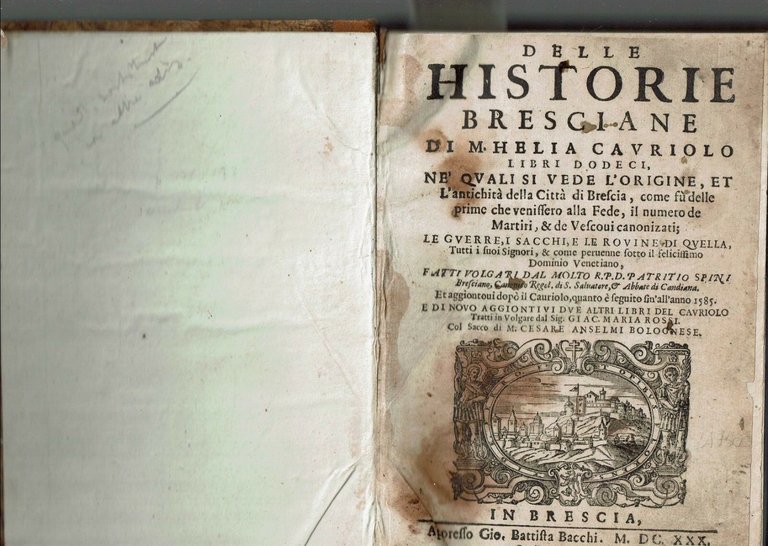 DELLE
HISTORIE
BRESCIANE
DI M. HELIA CAVRIOLO
LIBRI DODECI,
NE' QVALI SI VEDE L'ORIGINE, ET
L'antichità della Città di Brescia, come fù delle
prime che venissero alla Fede, il numero de
Martiri, & de Vescoui canonizati;
LE GVERRE, I SACCHI, E LE ROVINE DI QVELLA,
Tutti i suoi Signori, & come peruenne sotto il felicissimo
Dominio Venetiano,
FATTI VOLGARI DAL MOLTO R.P.D. PATRITIO SPINI
Bresciano, Canonico Regol. di S. Saluatore, & Abbate di Candiana.
Et aggiontoui dopò il Cauriolo, quanto è seguito sin'all'anno 1585.
E DI NOVO AGGIONTIVI DVE ALTRI LIBRI DEL CAVRIOLO
Tratti in Volgare dal Sig. GIAC. MARIA ROSSI.
Col Sacco di M. CESARE ANSELMI BOLOGNESE.
IN BRESCIA,
Apresso Gio. Battista Bacchi. M. DC. XXX.